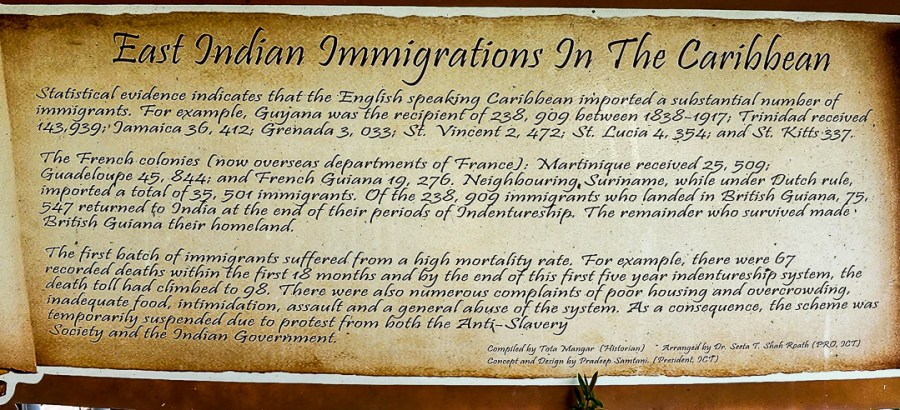 East Indian Immigrations In The Caribbean
Statistical evidence indicates that the English speaking Caribbean imported a substantial number of
immigrants. For example, Guyana was the recipient of 238, 909 between 1838-1917; Trinidad received
143,939; Jamaica 36, 412; Grenada 3, 033; St. Vincent 2, 472; St. Lucia 4, 354; and St. Kitts 337.
The French colonies (now overseas departments of France): Martinique received 25, 509;
Guadeloupe 45, 844; and French Guiana 19, 276. Neighbouring, Suriname, while under Dutch rule,
imported a total of 35, 501 immigrants. Of the 238, 909 immigrants who landed in British Guiana, 75,
547 returned to India at the end of their periods of Indentureship. The remainder who survived made
British Guiana their homeland.
The first batch of immigrants suffered from a high mortality rate. For example, there were 67
recorded deaths within the first 18 months and by the end of this first five year indentureship system, the
death toll had climbed to 98. There were also numerous complaints of poor housing and overcrowding,
inadequate food, intimidation, assault and a general abuse of the system. As a consequence, the scheme was
temporarily suspended due to protest from both the Anti-Slavery
Society and the Indian Government.
Compiled by Tota Mangar (Historian) Arranged by Dr. Seeta T. Shah Roath (PRO, ICT)
Concept and Design by Pradeep Samtani. (President, ICT)